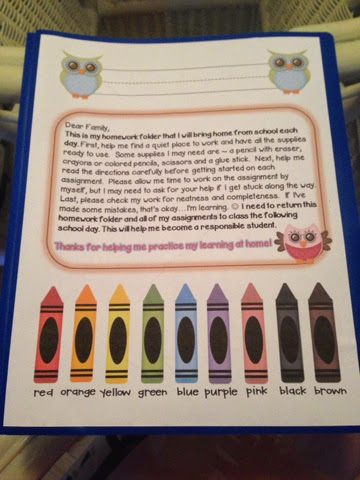 Dear Family,
This is my homework folder that I will bring home from school each
day. First, help me find a quiet place to work and have all the supplies
ready to use. Some supplies I may need are ~ a pencil with eraser,
crayons or colored pencils, scissors and a glue stick. Next, help me
read the directions carefully before getting started on each
assignment. Please allow me time to work on the assignment by
myself, but I may need to ask for your help if I get stuck along the way.
Last, please check my work for neatness and completeness. If I've
made some mistakes, that's okay...I'm learning. ☺ I need to return this
homework folder and all of my assignments to class the following
school day. This will help me become a responsible student.
Thanks for helping me practice my learning at home!
red orange yellow green blue purple pink black brown